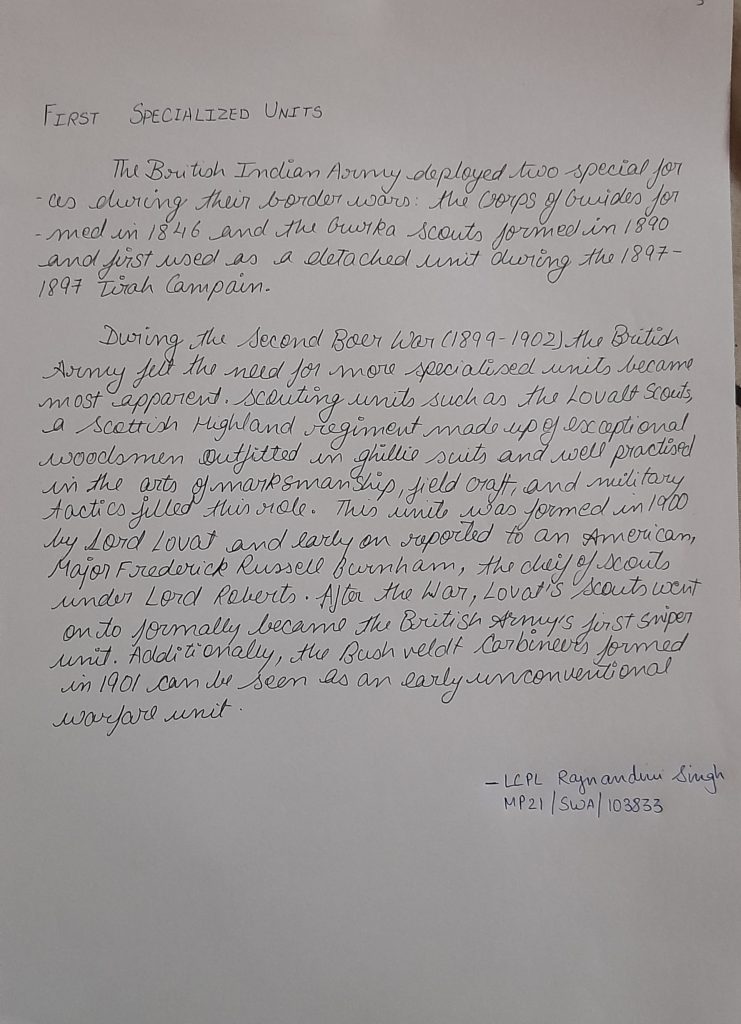 FIRST SPECIALIZED UNITS
The British Indian Army deployed two special for
-ces during their border wars: the Corps of Guides for
-med in 1846 and the Gurka Scouts formed in 1890
and first used as a detached unit during the 1897-
1897 Tirah Campain.
During the Second Boer War (1899-1902) the British
Army felt the need for more specialised units became
most apparent. Scouting units such as the Lovalt Scouts,
a Scottish Highland regiment made up of exceptional
woodsmen outfitted in ghillie suits and well practised
in the arts of marksmanship, field craft, and military
tactics filled this role. This units was formed in 1900
by Lord Lovat and early on reported to an American,
Major Frederick Russell Burnham, the cheif of scouts
under Lord Roberts. After the War, Lovat's Scouts went
on to formally became the British Army's first sniper
unit. Additionally, the Bush veldt Carbineers formed
in 1901 can be seen as an early unconventional
warfare unit.
- LCPL Rajnandini Singh
MP21/SWA/103833